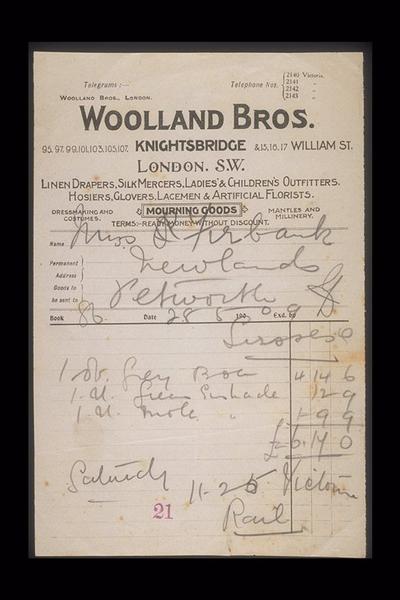 Telegrams :—
Telephone Nos. 2140 Victoria.
2141 „
2142 „
2143 „
WOOLLAND BROS., LONDON.
WOOLLAND BROS.
95. 97. 99. 101. 103. 105. 107. KNIGHTSBRIDGE & 15, 16, 17 WILLIAM ST.
LONDON. S.W.
LINEN DRAPERS, SILK MERCERS, LADIES' & CHILDREN'S OUTFITTERS.
HOSIERS, GLOVERS, LACEMEN & ARTIFICIAL FLORISTS.
DRESSMAKING AND COSTUMES. MOURNING GOODS MANTLES AND MILLINERY.
TERMS:- READY MONEY WITHOUT DISCOUNT.
Name Miss Firbank
Permanent Address Newlands
Goods to be sent to Petworth
Book 86 Date 28 5 1909 Exd. by
1 Grey Boa 4 14 6
1 Green Sunshade 12 9
1 Mole „ 1 9 9
£6. 17 0
Saturday 11-25 Victoria
Rail
21